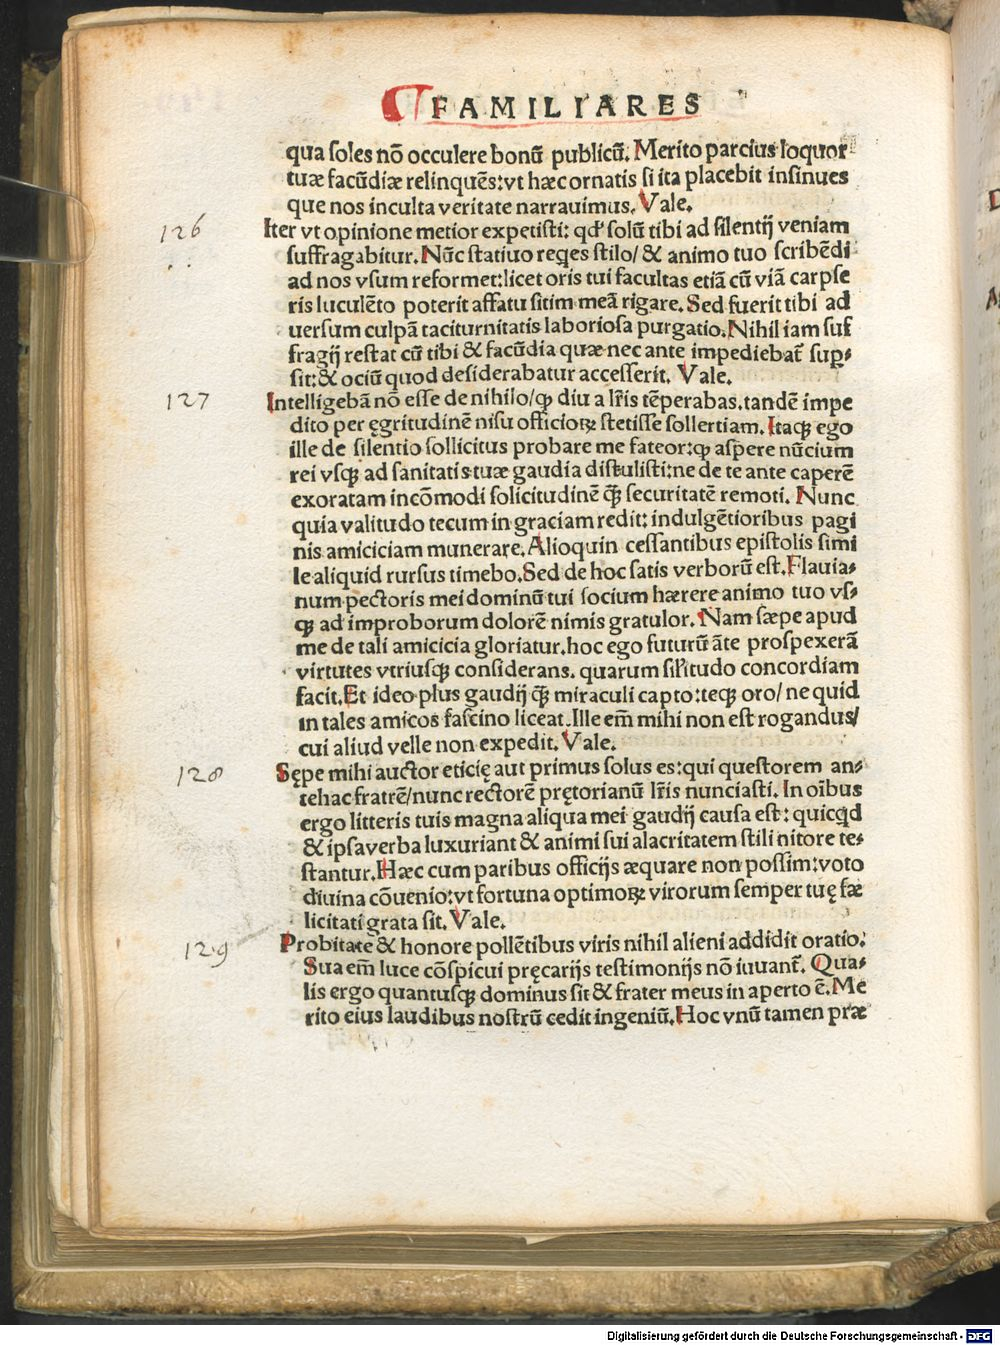 FAMILIARES
qua soles nō occulere bonū publicū. Merito parcius loquor
tuæ facūdiæ relinquēs: vt hæc ornatis si ita placebit insinues
que nos inculta veritate narrauimus. Vale.
126
Iter vt opinione metior expetisti: qd' solū tibi ad silentij veniam
suffragabitur. Nūc statiuo reqes stilo/ & animo tuo scribēdi
ad nos vsum reformet: licet oris tui facultas etiā cū viā carpse
ris luculēto poterit affatu sitim meā rigare. Sed fuerit tibi ad
uersum culpā taciturnitatis laboriosa purgatio. Nihil iam suf
fragij restat cū tibi & facūdia quæ nec ante impediebat̄ sup⸗
sit: & ociū quod desiderabatur accesserit. Vale.
127
Intelligebā nō esse de nihilo/ ꝙ diu a lr̄is tēperabas. tandē impe
dito per ęgritudinē nisu officioꝝ stetisse sollertiam. Itaqꝫ ego
ille de silentio sollicitus probare me fateor: ꝙ aspere nūcium
rei vsqꝫ ad sanitatis tuæ gaudia distulisti: ne de te ante caperē
exoratam incōmodi solicitudinē q̄ꝫ securitatē remoti. Nunc
quia valitudo tecum in graciam redit: indulgētioribus pagi
nis amiciciam munerare. Alioquin cessantibus epistolis simi
le aliquid rursus timebo. Sed de hoc satis verborū est. Flauia⸗
num pectoris mei dominū tui socium hærere animo tuo vs⸗
qꝫ ad improborum dolorē nimis gratulor. Nam sæpe apud
me de tali amicicia gloriatur. hoc ego futurū āte prospexerā
virtutes vtriusqꝫ considerans. quarum sil'itudo concordiam
facit. Et ideo plus gaudij q̄ꝫ miraculi capto: teqꝫ oro/ ne quid
in tales amicos fascino liceat. Ille em̄ mihi non est rogandus/
cui aliud velle non expedit. Vale.
128
Sępe mihi auctor eticię aut primus solus es: qui questorem an⸗
tehac fratrē/ nunc rectorē prętorianū lr̄is nunciasti. In oībus
ergo litteris tuis magna aliqua mei gaudij causa est: quicqd
& ipsa verba luxuriant & animi sui alacritatem stili nitore te⸗
stantur. Hæc cum paribus officijs æquare non possim: voto
diuina cōuenio: vt fortuna optimoꝝ virorum semper tuę fæ
licitati grata sit. Vale.
129
Probitate & honore pollētibus viris nihil alieni addidit oratio.
Sua em̄ luce cōspicui pręcarijs testimonijs nō iuuant̄. Qua⸗
lis ergo quantusqꝫ dominus sit & frater meus in aperto ē. Me
rito eius laudibus nostrū cedit ingeniū. Hoc vnū tamen præ
Digitalisierung gefördert durch die Deutsche Forschungsgemeinschaft - DFG